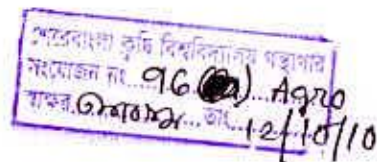 শেরেবাংলা কৃষি বিশ্ববিদ্যালয় গন্থাগার
সংযোজন নং 96 Agro
স্বাক্ষর তাং 12/10/10